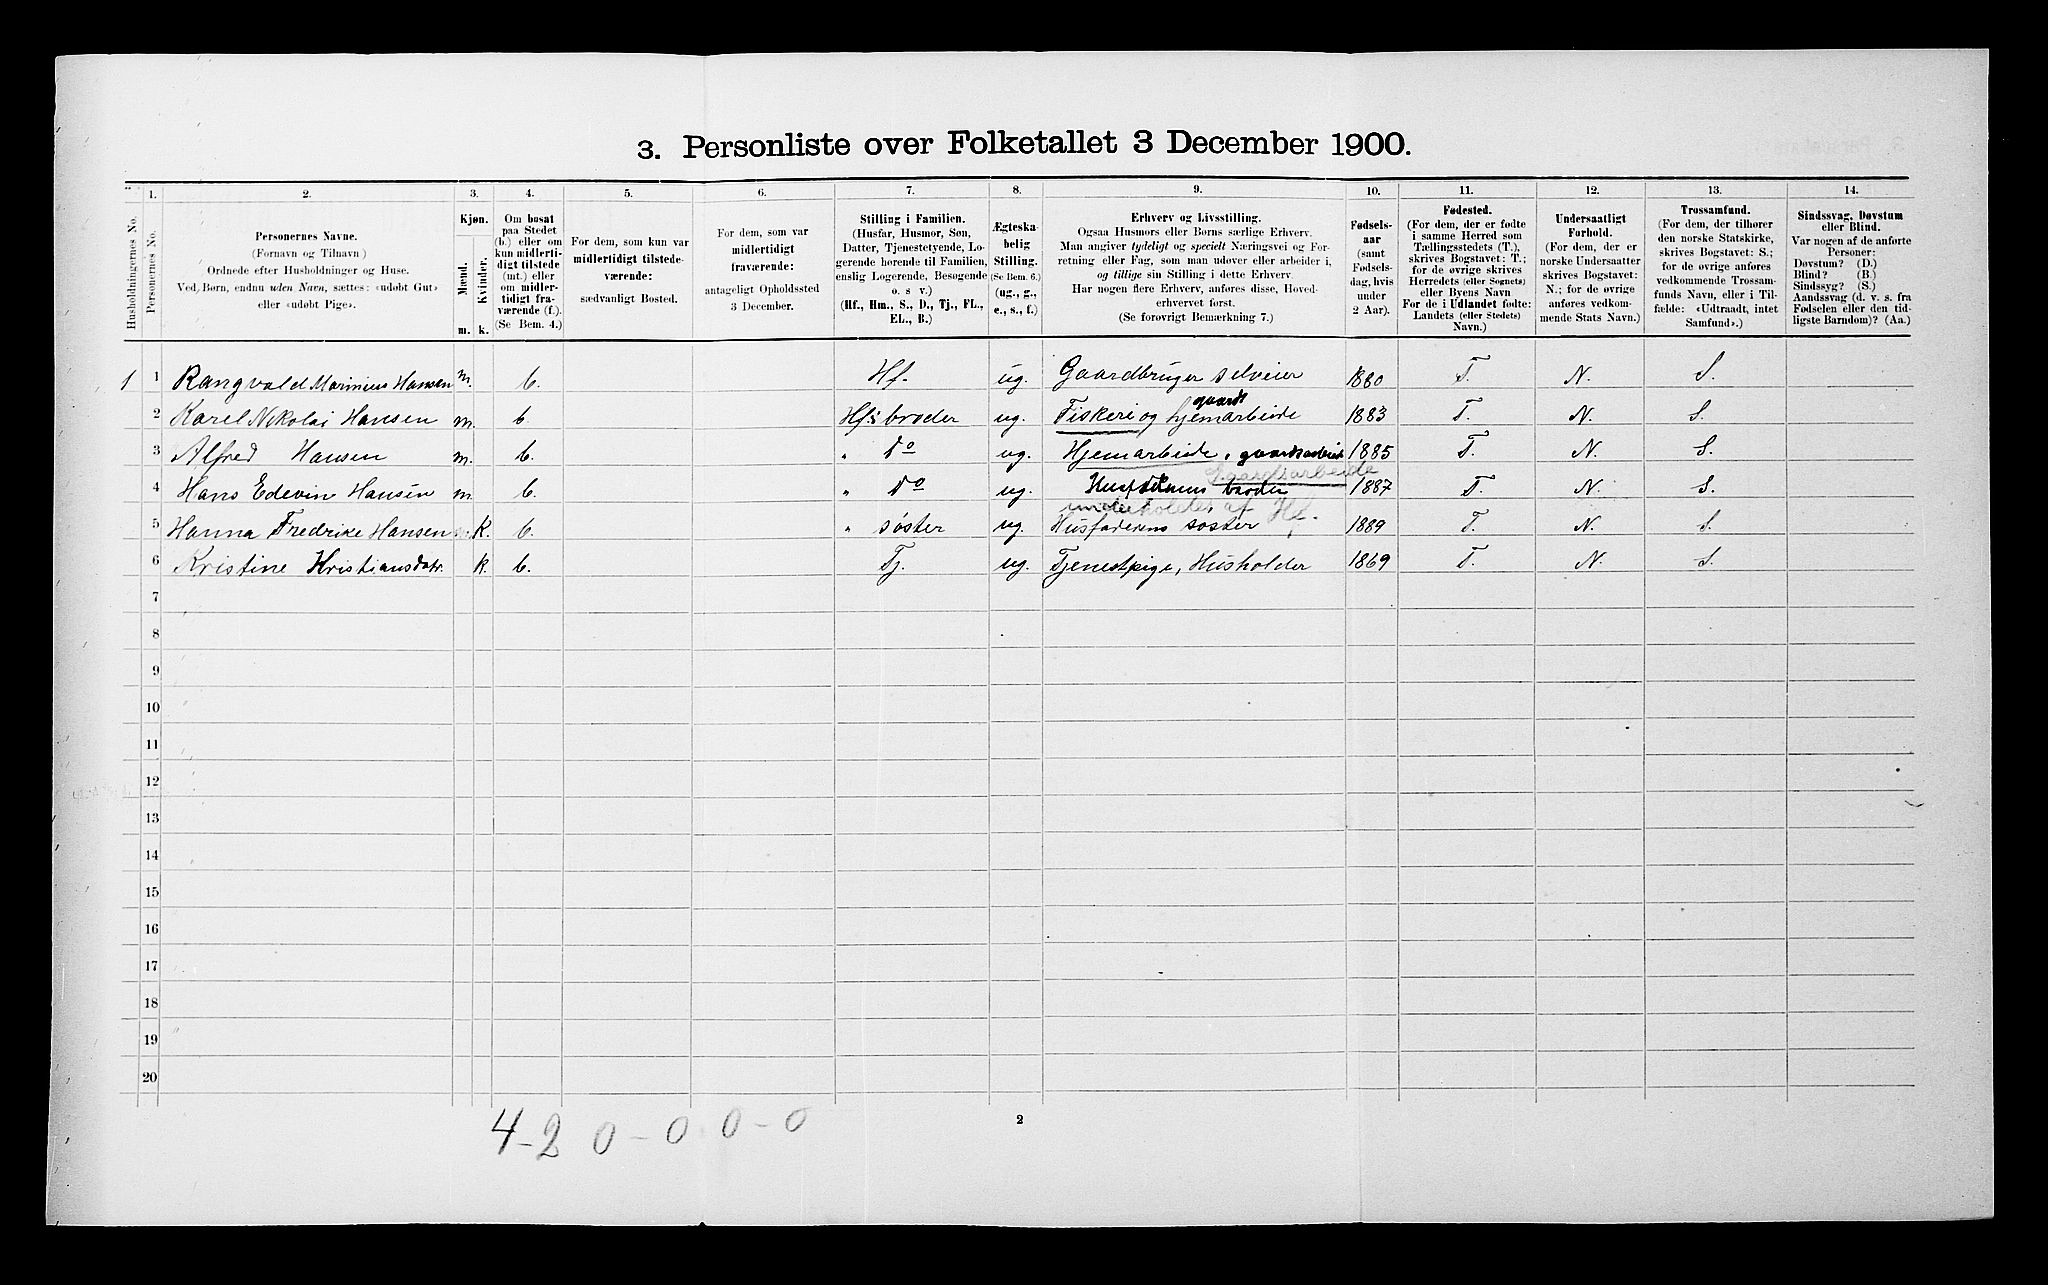 3. Personliste over Folketallet 3 December 1900.
Husholdningernes No.
1.
Personernes No.
2.
Personernes Navne.
(Fornavn og Tilnavn)
Ordnede efter Husholdninger og Huse.
Ved Børn, endnu uden Navn, sættes: «udøbt Gut»
eller «udøbt Pige».
3.
Kjøn.
Mænd.
Kvinder.
m. k.
4.
Om bosat
paa Stedet
(b.) eller om
kun midlerti-
digt tilstede
(mt.) eller
om midler-
tidigt fra-
værende (f.).
(Se Bem. 4.)
5.
For dem, som kun var
midlertidigt tilstede-
værende:
sædvanligt Bosted.
6.
For dem, som var
midlertidigt
fraværende:
antageligt Opholdssted
3 December.
7.
Stilling i Familien.
(Husfar, Husmor, Søn,
Datter, Tjenestetyende, Lo-
gerende hørende til Familien,
enslig Logerende, Besøgende
o. s v.)
(Hf., Hm., S., D., Tj., FL.,
EL., B.)
8.
Ægteska-
belig
Stilling.
(Se Bem. 6.)
(ug., g.,
e., s., f.)
9.
Erhverv og Livsstilling.
Ogsaa Husmors eller Børns særlige Erhverv.
Man angiver tydeligt og specielt Næringsvei og For-
retning eller Fag, som man udøver eller arbeider i,
og tillige sin Stilling i dette Erhverv.
Har nogen flere Erhverv, anføres disse, Hoved-
erhvervet først.
(Se forøvrigt Bemærkning 7.)
10.
Fødsels-
aar
(samt
Fødsels-
dag, hvis
under
2 Aar).
11.
Fødested.
(For dem, der er fødte
i samme Herred som
Tællingsstedets (T.),
skrives Bogstavet: T.;
for de øvrige skrives
Herredets (eller Sognets)
eller Byens Navn
For de i Udlandet fødte:
Landets (eller Stedets)
Navn.)
12.
Undersaatligt
Forhold.
(For dem, der er
norske Undersaatter
skrives Bogstavet:
N.; for de øvrige
anføres vedkom-
mende Stats Navn.)
13.
Trossamfund.
(For dem, der tilhører
den norske Statskirke,
skrives Bogstavet: S.;
for de øvrige anføres
vedkommende Trossam-
funds Navn, eller i Til-
fælde: «Udtraadt, intet
Samfund».)
14.
Sindssvag, Døvstum
eller Blind.
Var nogen af de anførte
Personer:
Døvstum? (D.)
Blind? (B.)
Sindssyg? (S.)
Aandssvag (d. v. s. fra
Fødselen eller den tid-
ligste Barndom)? (Aa.)
1 1 Rangvald Marinius Hansen m. b. Hf. ug. Gaardbruger selveier 1880 T. N. S.
gaards
2 Karel Nikolai Hansen m. b. Hf's broder ug. Fiskeri og hjemarbeide 1883 T. N. S.
3 Alfred Hansen m. b. " do ug. Hjemarbeide, gaardsarbeide 1885 T. N. S.
Gaardsarbeide
4 Hans Edevin Hansen m. b. " do ug. Husfaderens broder 1887 T. N. S.
underholdes af Hf.
5 Hanna Fredrike Hansen k. b. " søster ug. Husfaderens søster 1889 T. N. S.
6 Kristine Kristiansdatr. k. b. Tj. ug. Tjenestpige, Husholder 1869 T. N. S.
7
8
9
10
11
12
13
14
15
16
17
18
19
20
4-2 0-0 0-0
2